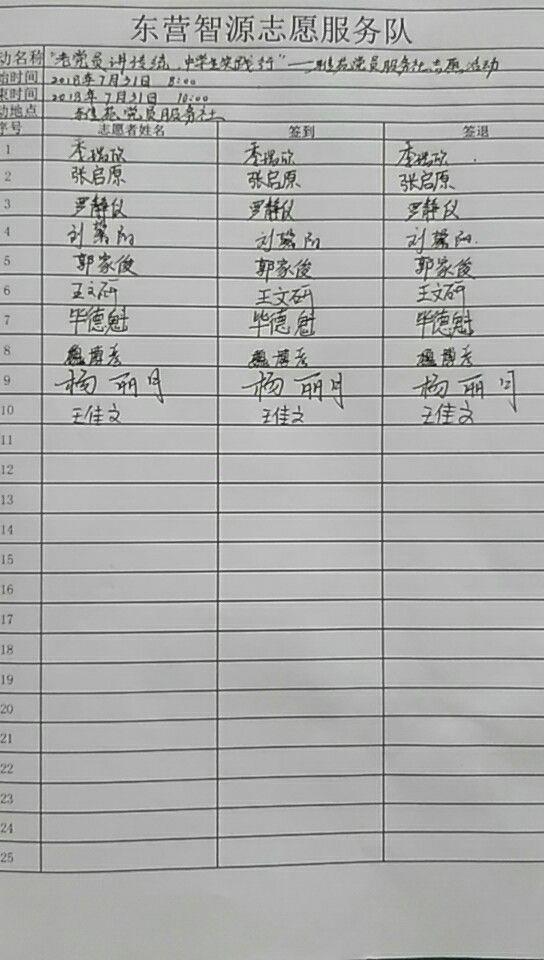 东营智源志愿服务队
动名称 "老党员讲传统，中学生实践行"——雅苑党员服务社志愿活动
始时间 2018年7月31日 8:00
束时间 2018年7月31日 10:00
动地点 雅苑党员服务社
序号 志愿者姓名 签到 签退
1 季瑞欣 季瑞欣 季瑞欣
2 张启原 张启原 张启原
3 罗静仪 罗静仪 罗静仪
4 刘馨阳 刘馨阳 刘馨阳
5 郭家俊 郭家俊 郭家俊
6 王文研 王文研 王文研
7 毕德魁 毕德魁 毕德魁
8 魏博彦 魏博彦 魏博彦
9 杨丽月 杨丽月 杨丽月
10 王佳文 王佳文 王佳文
11
12
13
14
15
16
17
18
19
20
21
22
23
24
25